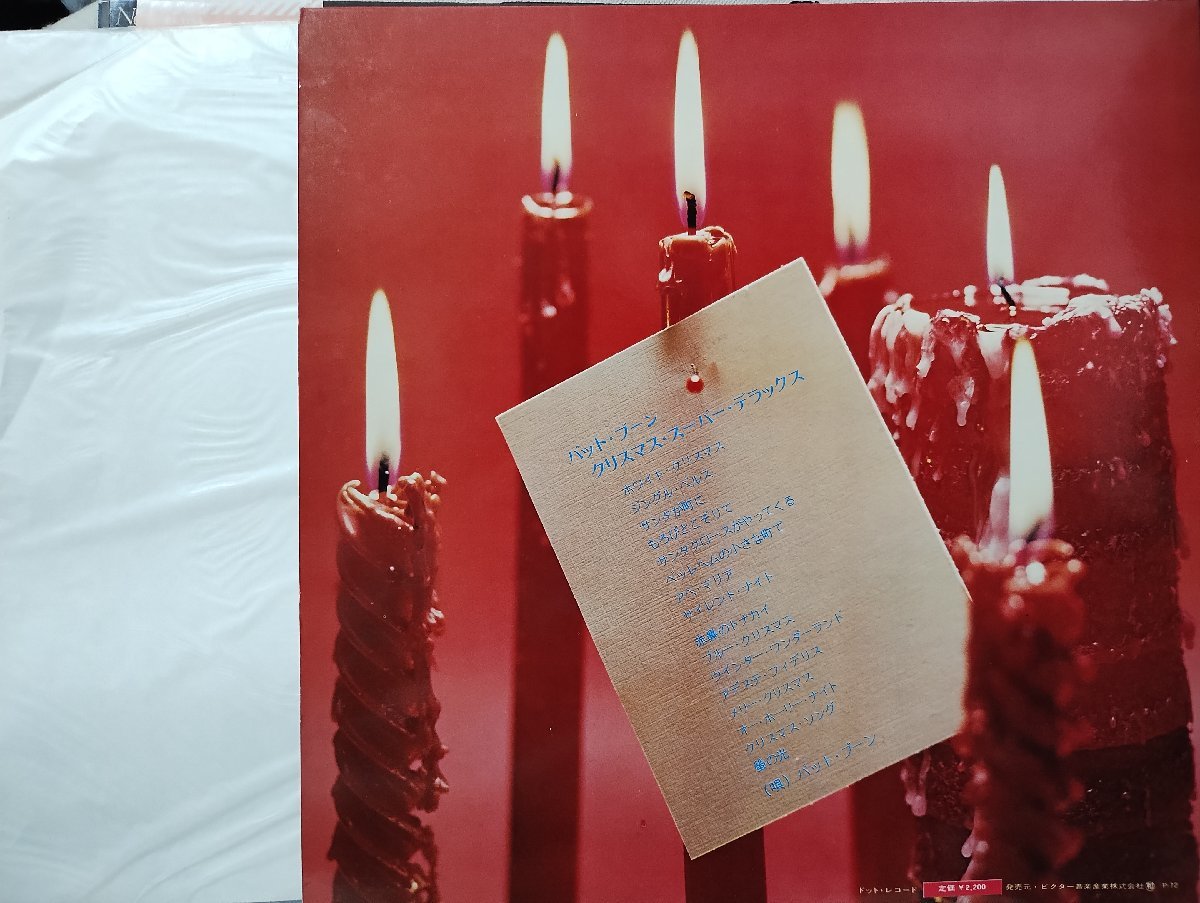 パット・ブーン
クリスマス・スーパー・デラックス
ホワイト・クリスマス
ジングル・ベルス
サンタが町に
もろびとこぞりて
サンタクロースがやってくる
ベツレヘムの小さな町で
アベ・マリア
サイレント・ナイト
赤鼻のトナカイ
ブルー・クリスマス
ウインター・ワンダーランド
アデステ・フィデリス
メリー・クリスマス
オー・ホーリー・ナイト
クリスマス・ソング
蛍の光
(唄) パット・ブーン
ドット・レコード 定価 ¥2,200 発売元・ビクター音楽産業株式会社